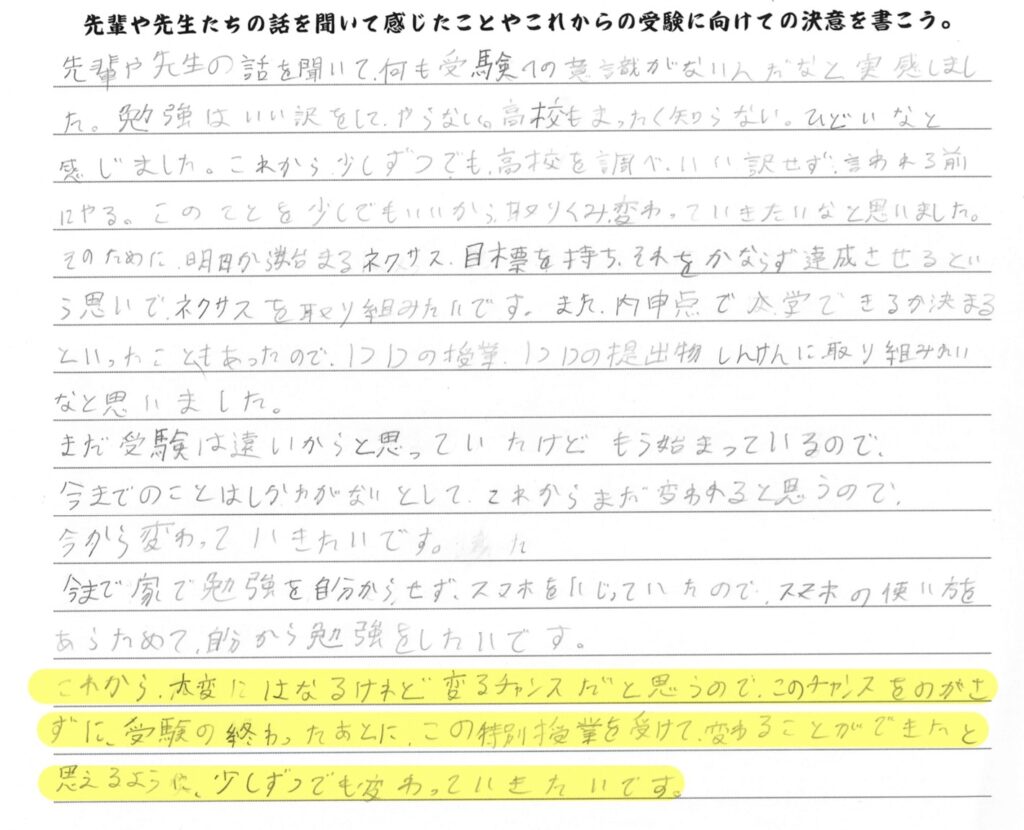 先輩や先生たちの話を聞いて感じたことやこれからの受験に向けての決意を書こう。
先輩や先生の話を聞いて、何も受験への意識がないんだなと実感しまし
た。勉強はいい訳をして、やらない。高校もまったく知らない。ひどいなと
感じました。これから、少しずつでも、高校を調べ、いい訳せず、言われる前
にやる。このことを少しでもいいから、取りくみ、変わっていきたいなと思いました。
そのために、明日から始まるネクサス、目標を持ち、それをかならず達成させるとい
う思いで、ネクサスを取り組みたいです。また、内申点で入学できるか決まる
といったこともあったので、1つ1つの授業、1つ1つの提出物しんけんに取り組みたい
なと思いました。
まだ受験は遠いからと思っていたけどもう始まっているので、
今までのことはしかたがないとして、これからまだ変われると思うので、
今から変わっていきたいです。
今まで家で勉強を自分からせず、スマホをいじっていたので、スマホの使い方を
あらためて、自分から勉強をしたいです。
これから、大変にはなるけれど変るチャンスだと思うので、このチャンスをのがさ
ずに、受験の終わったあとに、この特別授業を受けて、変わることができたと
思えるように、少しずつでも変わっていきたいです。